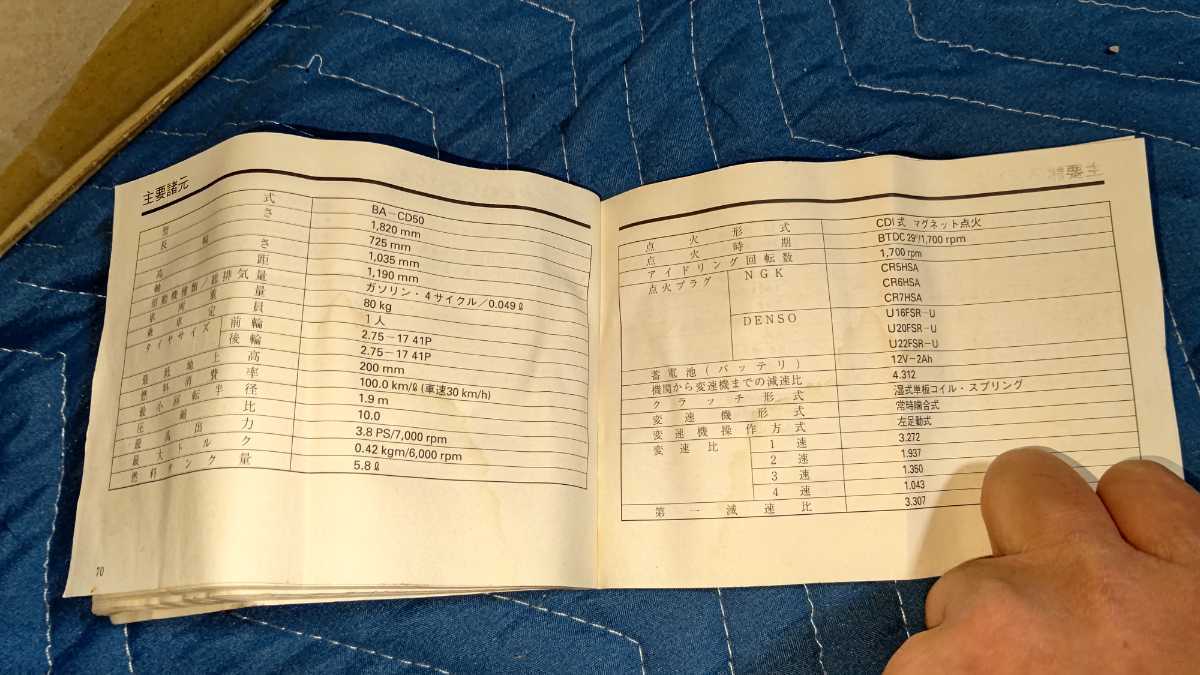 主要諸元
型式 BA-CD50
長さ 1,820 mm
幅 725 mm
高さ 1,035 mm
軸距 1,190 mm
原動機種類/総排気量 ガソリン・4サイクル/0.049ℓ
車両重量 80 kg
乗車定員 1人
タイヤサイズ 前輪 2.75-17 41P
後輪 2.75-17 41P
最低地上高 200 mm
燃料消費率 100.0 km/ℓ (車速30 km/h)
最小回転半径 1.9 m
圧縮比 10.0
最高出力 3.8 PS/7,000 rpm
最大トルク 0.42 kgm/6,000 rpm
燃料タンク容量 5.8ℓ
70
点火形式 CDI式 マグネット点火
点火時期 BTDC 29°/1,700 rpm
アイドリング回転数 1,700 rpm
点火プラグ NGK CR5HSA
CR6HSA
CR7HSA
DENSO U16FSR-U
U20FSR-U
U22FSR-U
蓄電池(バッテリ) 12V-2Ah
機関から変速機までの減速比 4.312
クラッチ形式 湿式単板コイル・スプリング
変速機形式 常時噛合式
変速機操作方式 左足動式
変速比 1速 3.272
2速 1.937
3速 1.350
4速 1.043
第一減速比 3.307